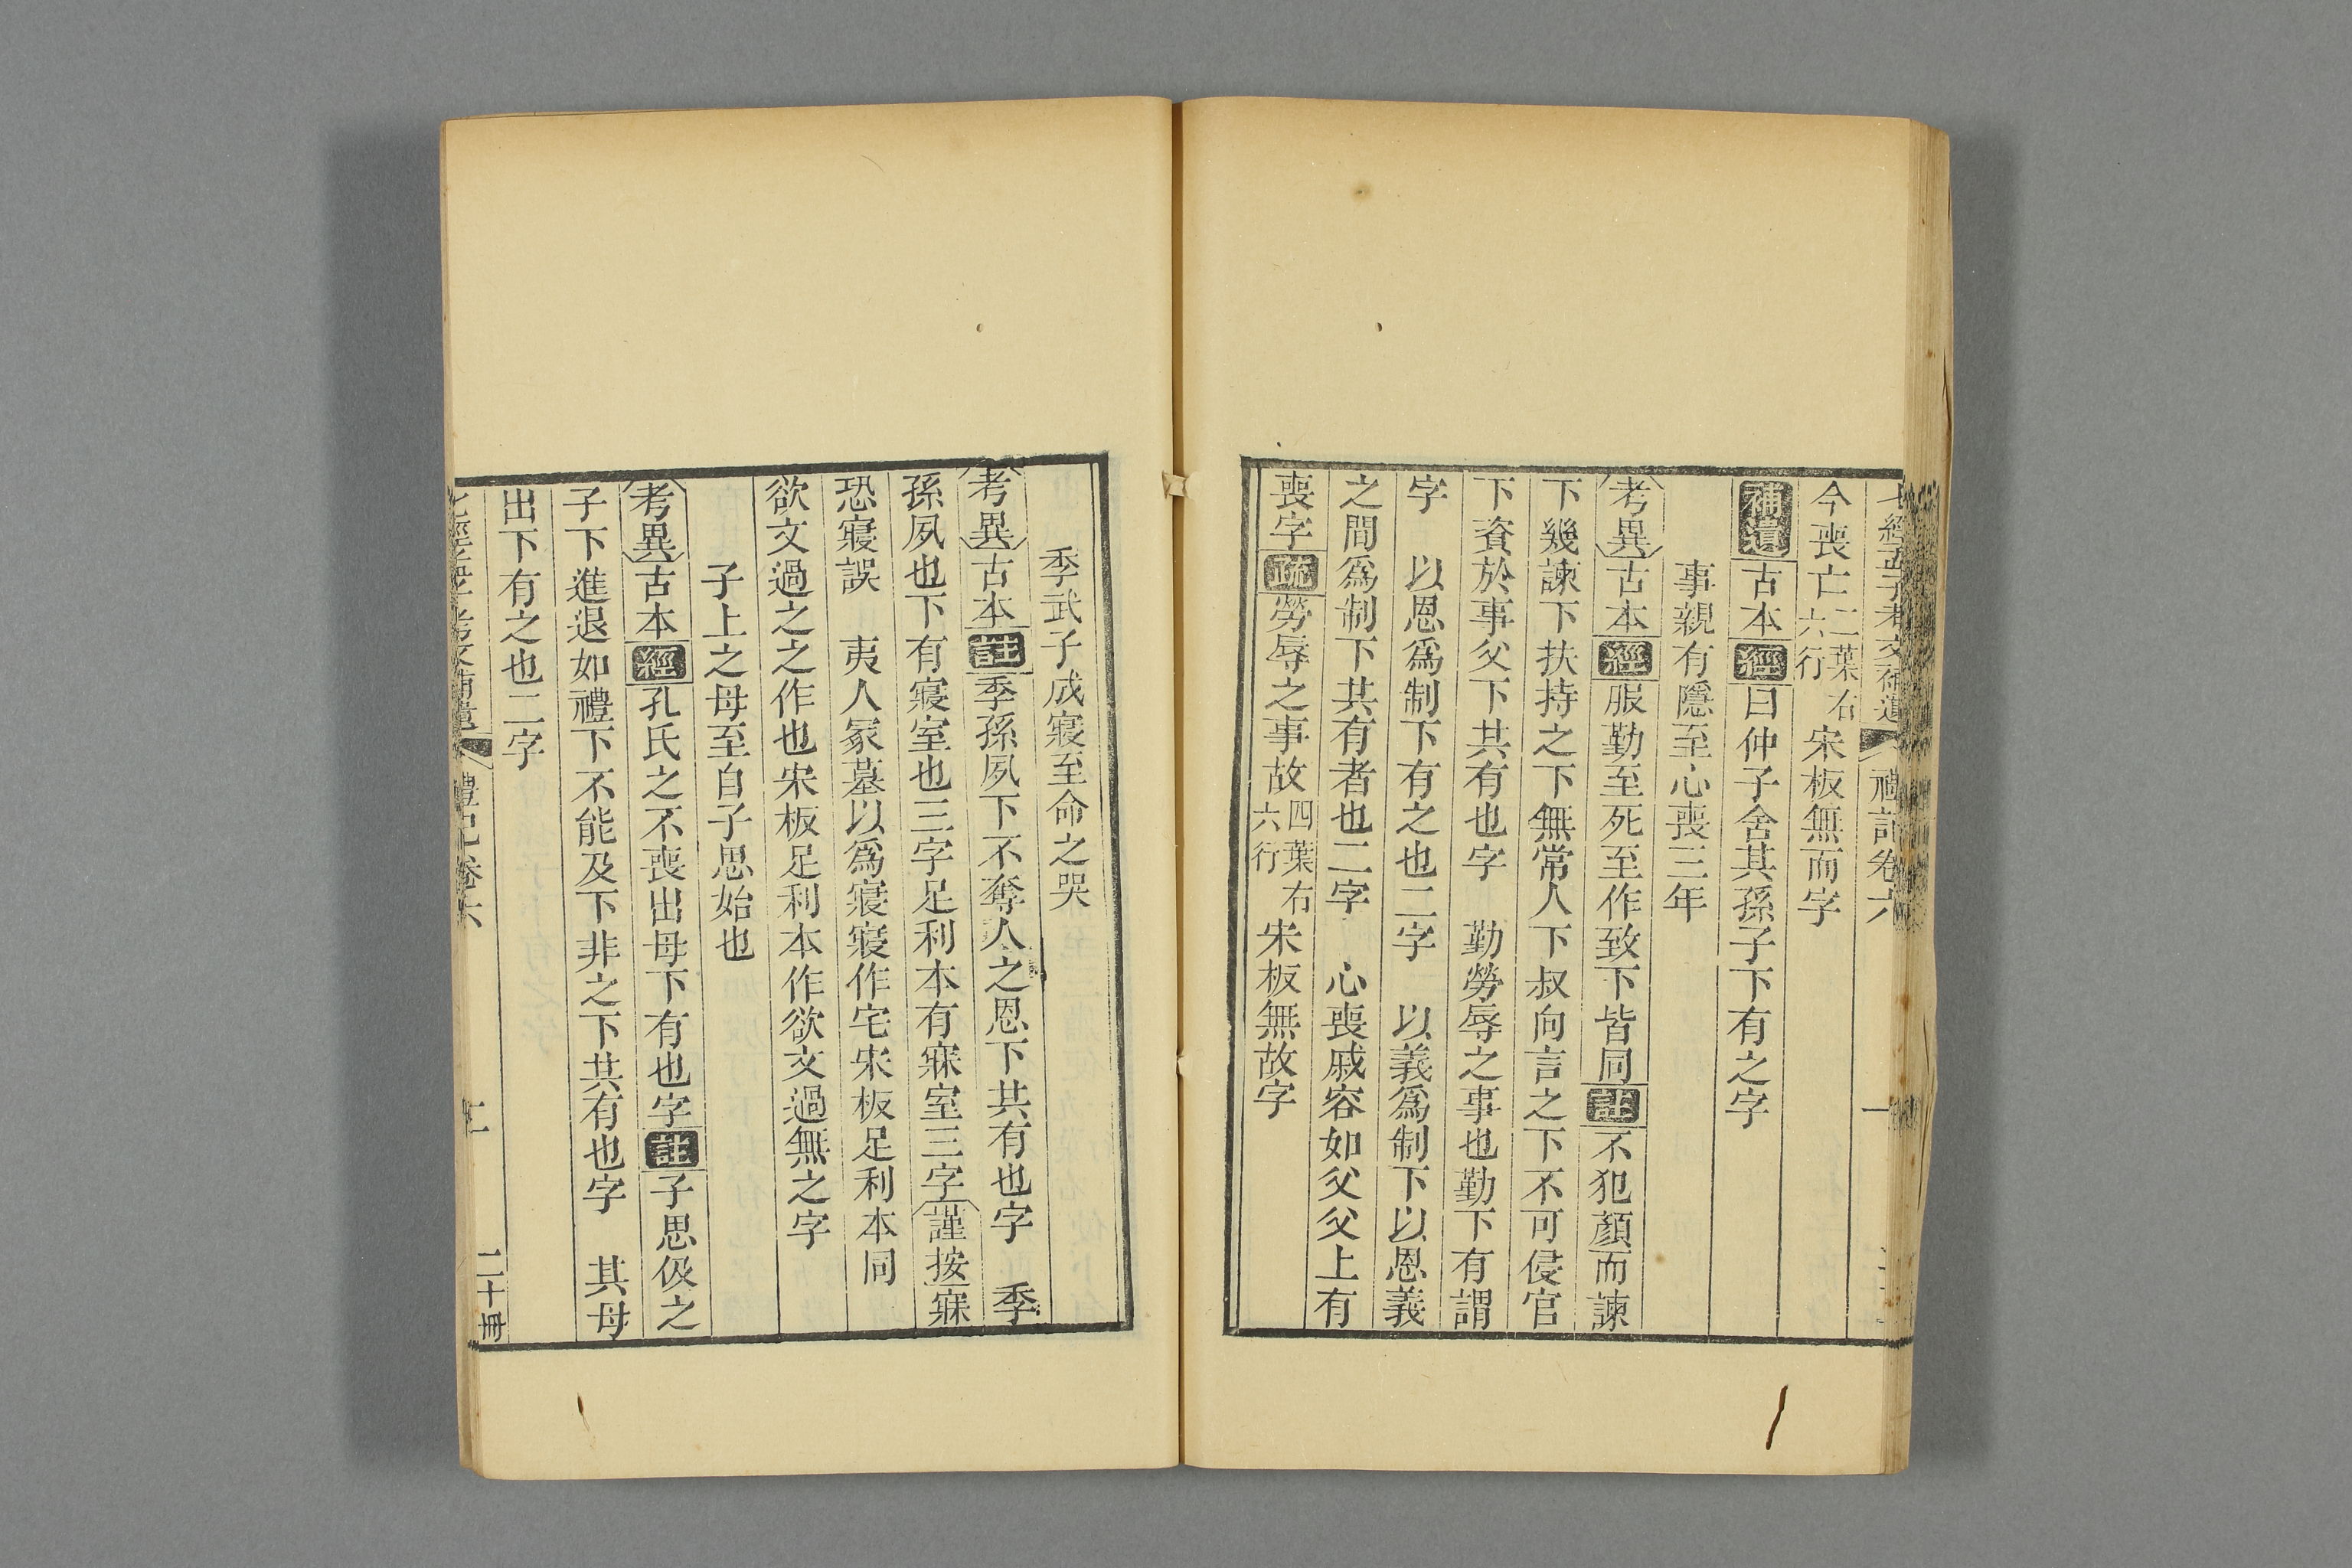 七經孟子考文補遺 禮記卷六 一
今喪亡二葉右六行宋板無而字
補遺古本經曰仲子舍其孫子下有之字
事親有隱至心喪三年
考異古本經服勤至死至作致下皆同註不犯顏而諫
下幾諫下扶持之下無常人下叔向言之下不可侵官
下資於事父下共有也字 勤勞辱之事也勤下有謂
字 以恩爲制下有之也二字 以義爲制下以恩義
之間爲制下共有者也二字 心喪戚容如父父上有
喪字疏勞辱之事故四葉右六行宋板無故字
季武子成寢至命之哭
考異古本註季孫夙下不奪人之恩下共有也字 季
孫夙也下有寢室也三字足利本有寐室三字謹按寐
恐寢誤 夷人冢墓以爲寢寢作宅宋板足利本同
欲文過之之作也宋板足利本作欲文過無之字
子上之母至自子思始也
考異古本經孔氏之不喪出母下有也字註子思伋之
子下進退如禮下不能及下非之下共有也字 其母
出下有之也二字
七經孟子考文補遺 禮記卷六 二十冊